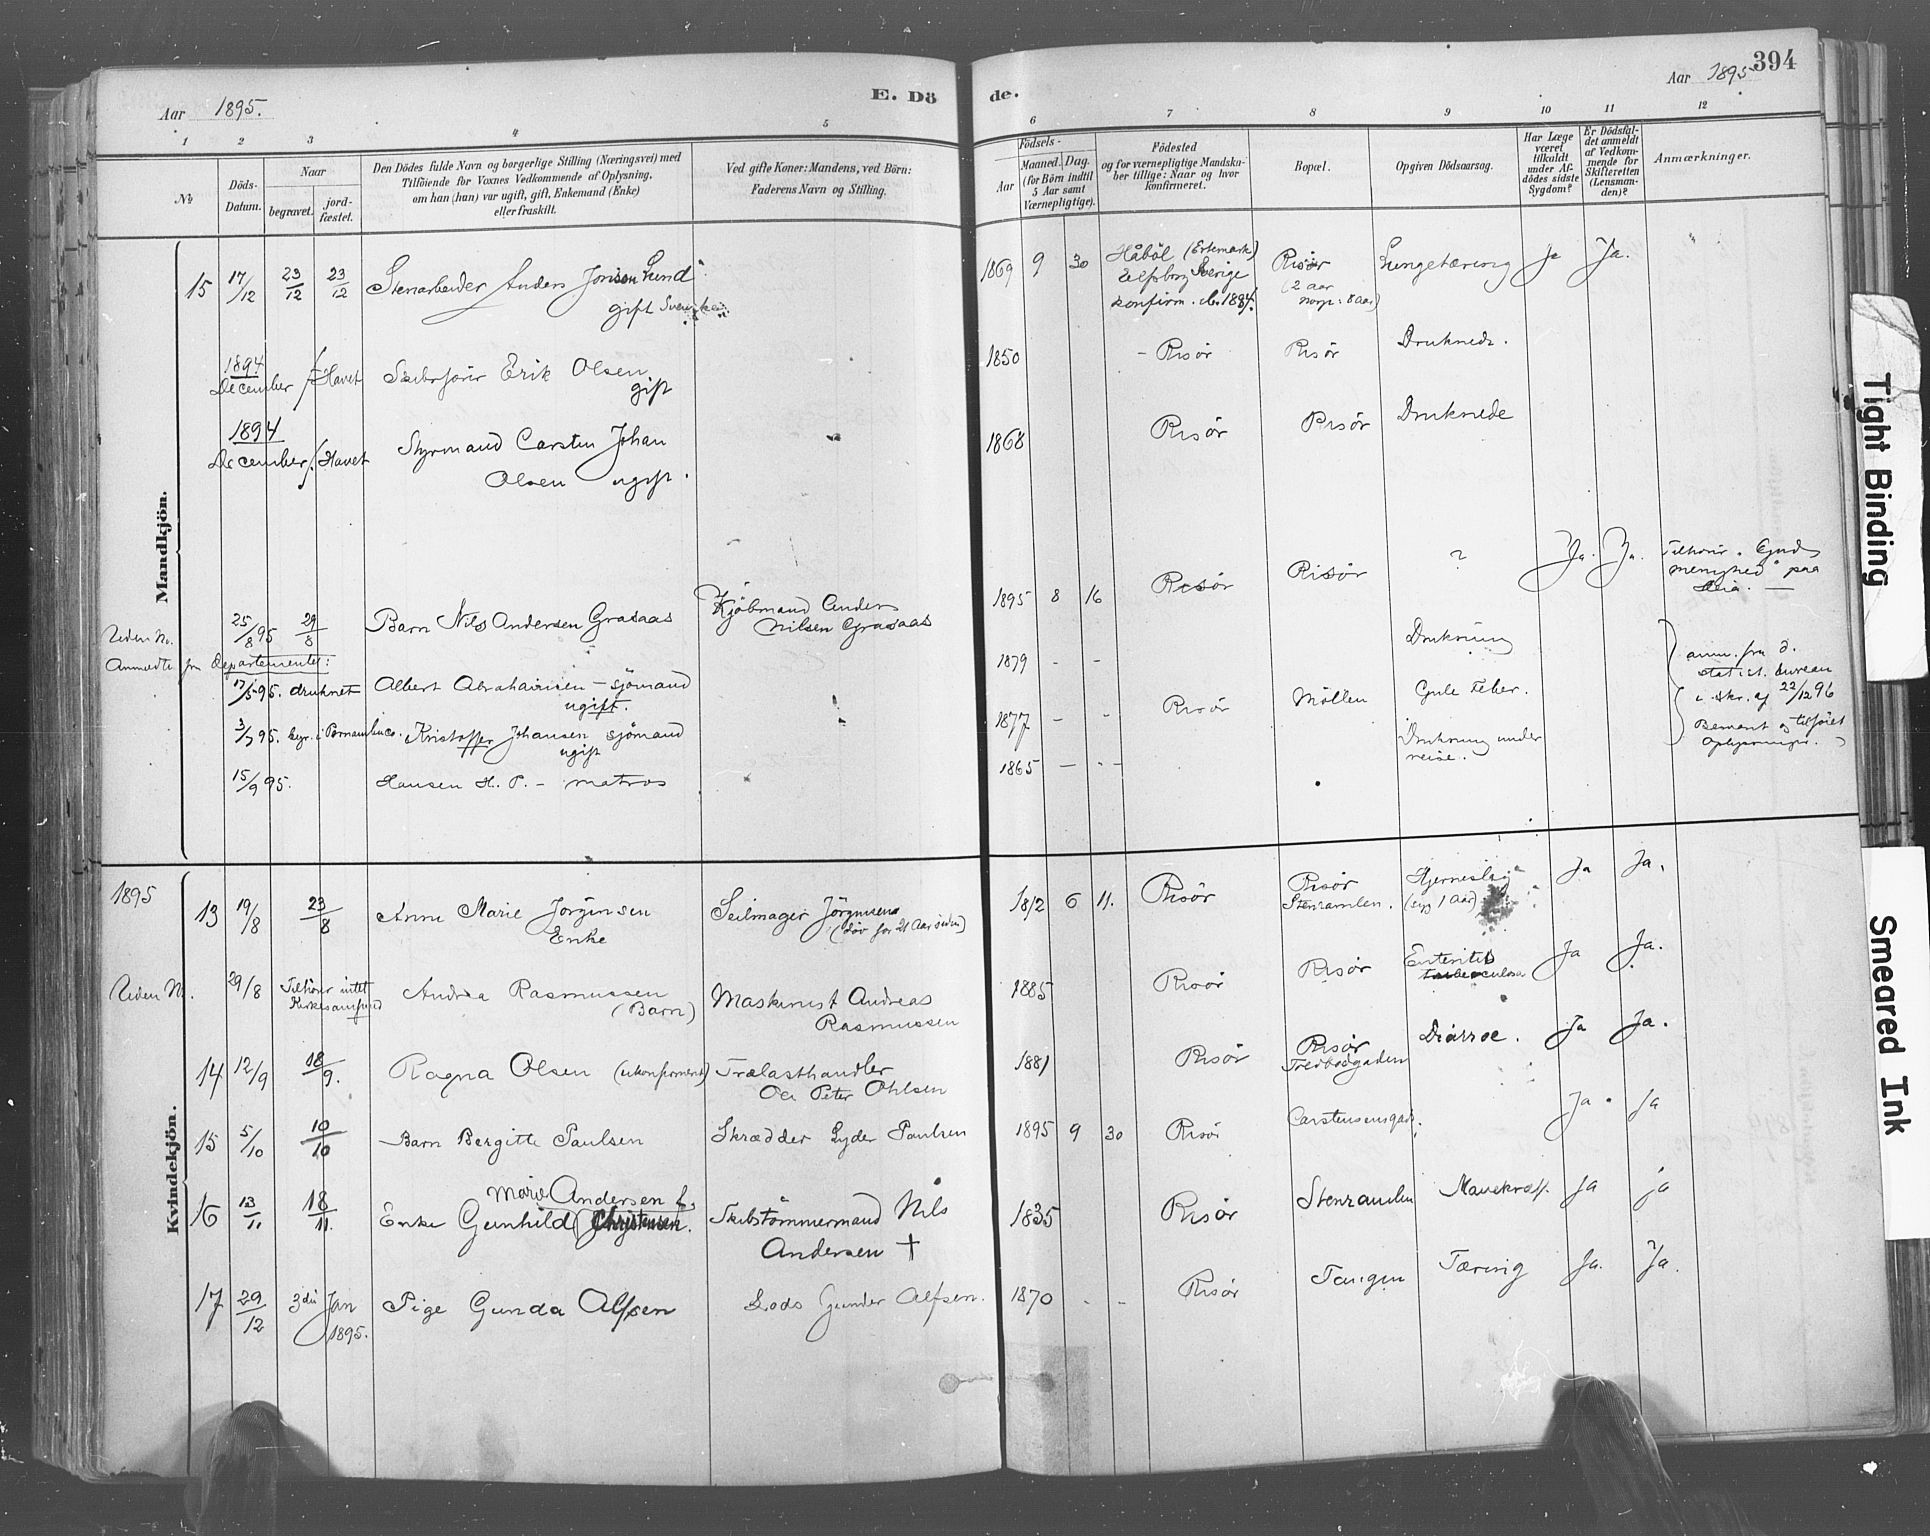 Aar 1895.
E. Dö
de.
Aar 1895
394
1 2 3 4 5 6 7 8 9 10 11 12
No
Döds-Datum.
Naar
begravet.
jord-fæstet.
Den Dödes fulde Navn og borgerlige Stilling (Næringsvei) med
Tilföiende for Voxnes Vedkommende af Oplysning,
om han (hun) var ugift, gift, Enkemand (Enke)
eller fraskilt.
Ved gifte Koner: Mandens, ved Börn:
Faderens Navn og Stilling.
Födsels-
Aar
Maaned. Dag.
(for Börn indtil
5 Aar samt
Værnepligtige).
Födested
og for værnepligtige Mandska-
ber tillige: Naar og hvor
konfirmeret.
Bopæl.
Opgiven Dödsaarsag.
Har Læge
været
tilkaldt
under Af-
dödes sidste
Sygdom?
Er Dödsfal-
det anmeldt
af Vedkom-
mende for
Skifteretten
(Lensman-
den)?
Anmærkninger.
Mandkjön.
15 17/12 23/12 23/12 Stenarbeider Anders Jonson Lund
gift Svensker
1869 9 30 Håböl (Ertemark)
Elfsborg Sverige
konfirm.
Risør
(2 aar
norge: 8 aar)
Lungetæring Ja Ja.
1894
December i Havet Skibsfører Erik Olsen
gift
1850 - Risör Risör Druknede.
1894
December i Havet Styrmand Carsten Johan
Olsen ugift.
1868 Risör Risör Druknede
Uden No. 25/8 95 29/8 Barn Nils Andersen Grasaas Kjøbmand Anders
Nilsen Grasaas
1895 8 16 Risör Risör ? Ja. Ja.
menighed" paa
Anmeldte fra Departementet:
17/5 95. druknet Albert Abrahamsen - sjömand
ugift.
1879 - - Drukning
3/7 95. begr. i Pernambuco. Kristoffer Johansen sjömand
ugift
1877 - - Risör Möllen Gule Feber.
15/9 95. Hansen H. P. - matros
1865 - - Drukning under
reise.
anm. fra d.
statist. bureau
i skr. af 22/12 96
Bemært og tilföiet
Kvindekjön.
1895
13 19/8 23/8 Anne Marie Jörgensen
Enke
Seilmager Jörgensen
(död for 21 Aar siden)
1812 6 11. Risör Risör
Stenramlen.
Hjerneslag
(syg 1 Aar)
Ja Ja.
Uden No. 29/8 Tilhörer intet
Kirkesamfund
Andrea Rasmussen
(Barn)
Maskinist Andreas
Rasmussen
1885 Risör Risör Enteritis
tuberculosa
Ja Ja.
14 12/9 18/9. Ragna Olsen (ukonfirmeret) Trælasthandler
Ole Peter Ohlsen
1881 Risör Risör
Tredbodgaden
Diarroe. Ja Ja.
15 5/10 10/10 Barn Bergitte Paulsen Skrædder Lyder Paulsen 1895 9 30 Risör Carstensensgad. Ja. Ja
16 13/11 18/11. Marie Andersen f.
Enke Gunhild (Christensen. Skibstömmermand Nils
Andersen †
1835 Risör Stenramlen Mavekræft Ja ja
17 29/12 3die Jan
1895.
Pige Gunda Alfsen Lods Gunder Alfsen. 1870 - - Risör Tangen Tæring Ja. Ja.
Tight Binding
Smeared Ink